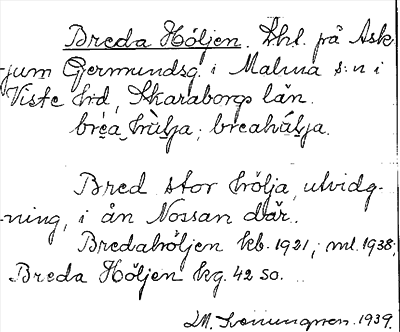 Breda Höljen. Shl. på Ask-
jum Germundsg. i Malma s:n i
Viste hd, Skaraborgs län.
brea, hùlja; breahúlja.
Bred stor hölja, utvidg-
ning, i ån Nossan där.
Bredahöljen kb. 1921; ml. 1938;
Breda Höljen kg. 42 so.
1939.